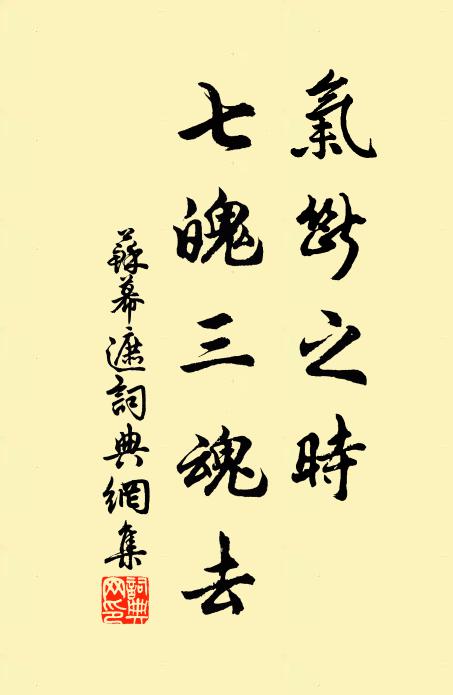 氣斷之時
七魄三魂去
蘇幕遮詞典網集
詞典網印